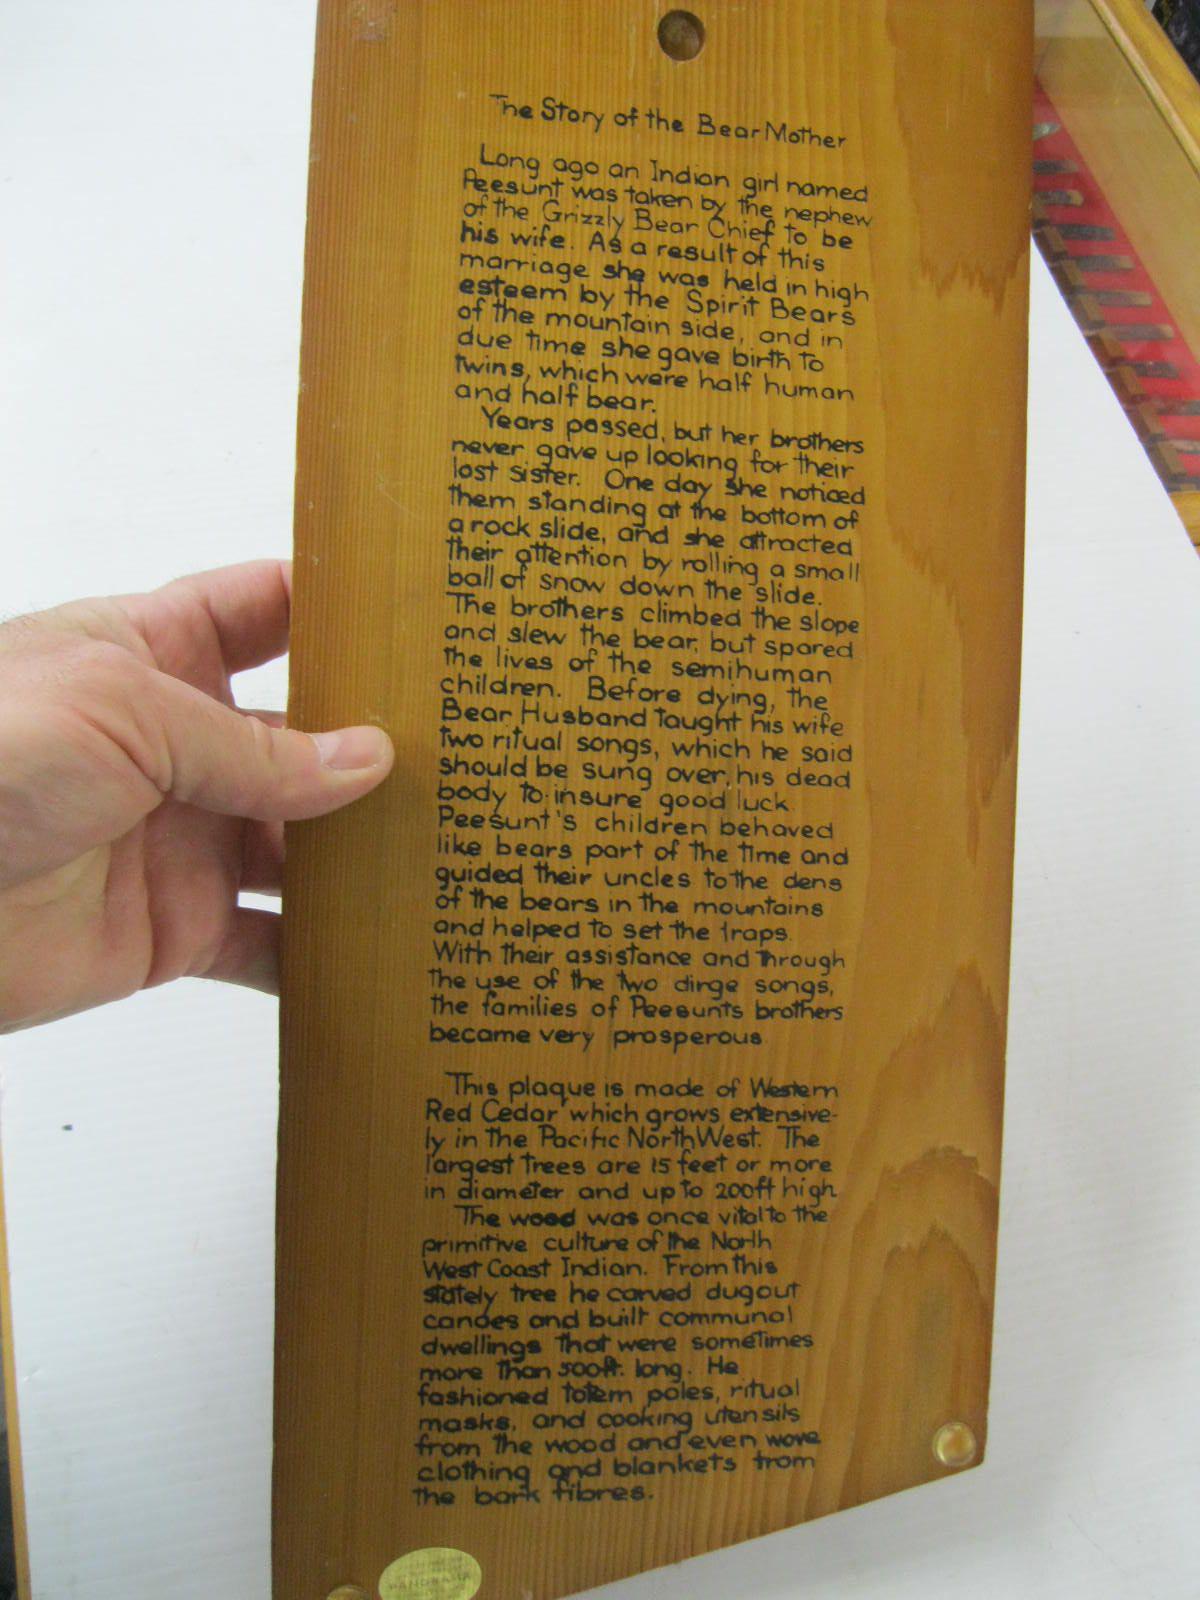 The Story of the Bear Mother
Long ago an Indian girl named
Peesunt was taken by the nephew
of the Grizzly Bear Chief to be
his wife. As a result of this
marriage she was held in high
esteem by the Spirit Bears
of the mountain side, and in
due time she gave birth to
twins, which were half human
and half bear.
Years passed, but her brothers
never gave up looking for their
lost sister. One day she noticed
them standing at the bottom of
a rock slide, and she attracted
their attention by rolling a small
ball of snow down the slide.
The brothers climbed the slope
and slew the bear, but spared
the lives of the semihuman
children. Before dying, the
Bear Husband taught his wife
two ritual songs, which he said
should be sung over his dead
body to insure good luck.
Peesunt's children behaved
like bears part of the time and
guided their uncles to the dens
of the bears in the mountains
and helped to set the traps.
With their assistance and through
the use of the two dirge songs,
the families of Peesunts brothers
became very prosperous.
This plaque is made of Western
Red Cedar which grows extensive-
ly in the Pacific North West. The
largest trees are 15 feet or more
in diameter and up to 200ft high
The wood was once vital to the
primitive culture of the North
West Coast Indian. From this
stately tree he carved dugout
canoes and built communal
dwellings that were sometimes
more than 500ft. long. He
fashioned totem poles, ritual
masks, and cooking utensils
from the wood and even wove
clothing and blankets from
the bark fibres.
PANORAMA